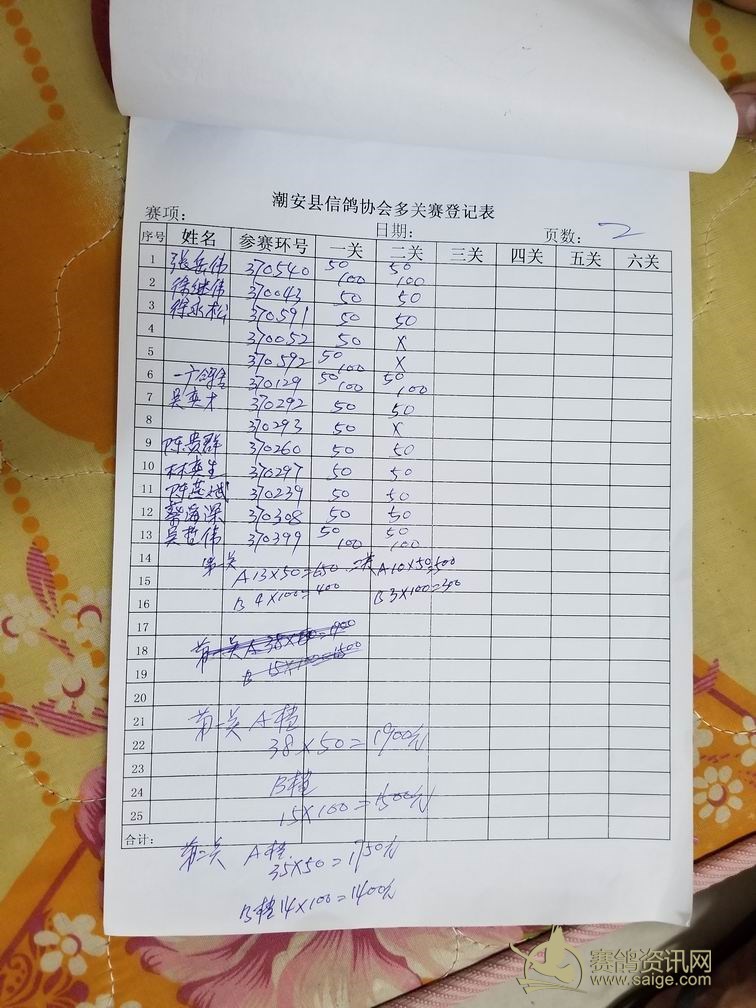 潮安县信鸽协会多关赛登记表
赛项: 日期: 页数: 2
序号 姓名 参赛环号 一关 二关 三关 四关 五关 六关
1 张岳伟 370540 50 100 50 100
2 徐继伟 370043 50 50
3 徐永松 370591 50 50
4 370052 50 X
5 370592 50 100 X
6 370129 50 100 50 100
7 吴奕才 370292 50 50
8 370293 50 X
9 陈贵群 370260 50 50
10 林奕生 370297 50 50
11 陈燕斌 370239 50 50
12 蔡海深 370308 50 50
13 吴哲伟 370399 50 100 50 100
14 第一关
15 A 13X50=650 二关 A10X50=500
16 B 4X100=400 B3X100=300
17
18 第一关 A 38X50=1900
19 B 15X100=1500
20
21 第一关 A档
22 38X50=1900元
23
24 B档
25 15X100=1500元
合计:
第二关 A档
35X50=1750元
B档14X100=1400元
赛鸽资讯网
www.saige.com